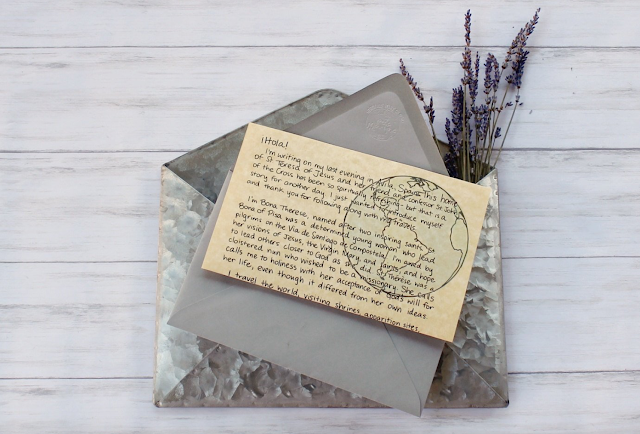 ¡Hola!
I'm writing on my last evening in Avila, Spain. This home
of St. Teresa of Jesus and her friend and confessor St. John
of the Cross has been so spiritually enriching - but that is a
story for another day. I just want to introduce myself
and thank you for following along with my travels.
I'm Bona Therese, named after two inspiring saints. St.
Bona of Pisa was a determined young woman who lead
pilgrims on the Via de Santiago de Compostela. I'm awed by
her visions of Jesus, the Virgin Mary, and saints, and hope
to lead others closer to God as she did. St. Thérèse was a
cloistered nun who wished to be a missionary. She calls
calls me to holiness with her acceptance of God's will for
her life, even though it differed from her own ideas.
I travel the world, visiting shrines, apparition sites,